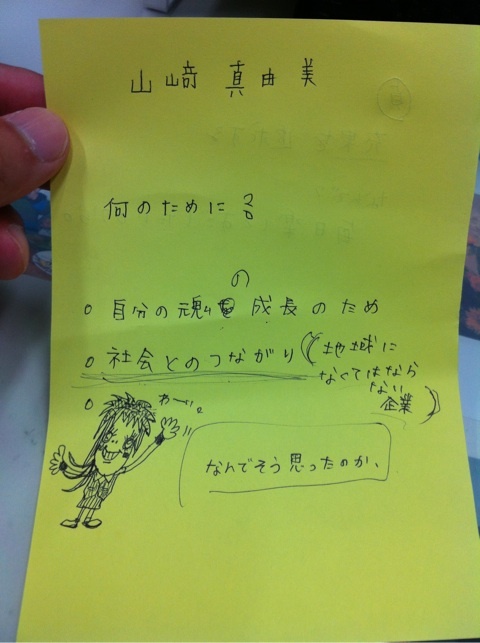 山﨑 真由美
何のために?
の
○ 自分の魂 成長のため
○ 社会とのつながり(地球に
なくてはなら
ない
企業)
○
わーい。
なんでそう思ったのか、